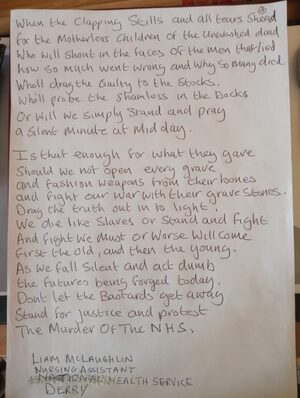 ③
When the Clapping Stills and all tears Shead
for the Motherless Children of the Unwashed dead
Who will shout in the faces of the men that lied
how so much went wrong and why so many died.
Wholl drag the Guilty to the Stocks.
Wholl probe the Shamless in the Docks
Or Will we Simply Stand and pray
a Silent Minute at Mid day.
Is that enough for what they gave
Should we not open every grave
and Fashion weapons from their bones
and fight our War with their grave Stones.
Drag the truth out in to light.
We die like Slaves or Stand and fight
And fight We Must or Worse Will Come
First the old, and then the young.
As we Fall Silent and act dumb
the futures being forged today.
Dont let the Bastards get away
Stand for justice and protest
The Murder Of The NHS.
LIAM MCLAUGHLIN
NURSING ASSISTANT
HEALTH SERVICE
DERRY